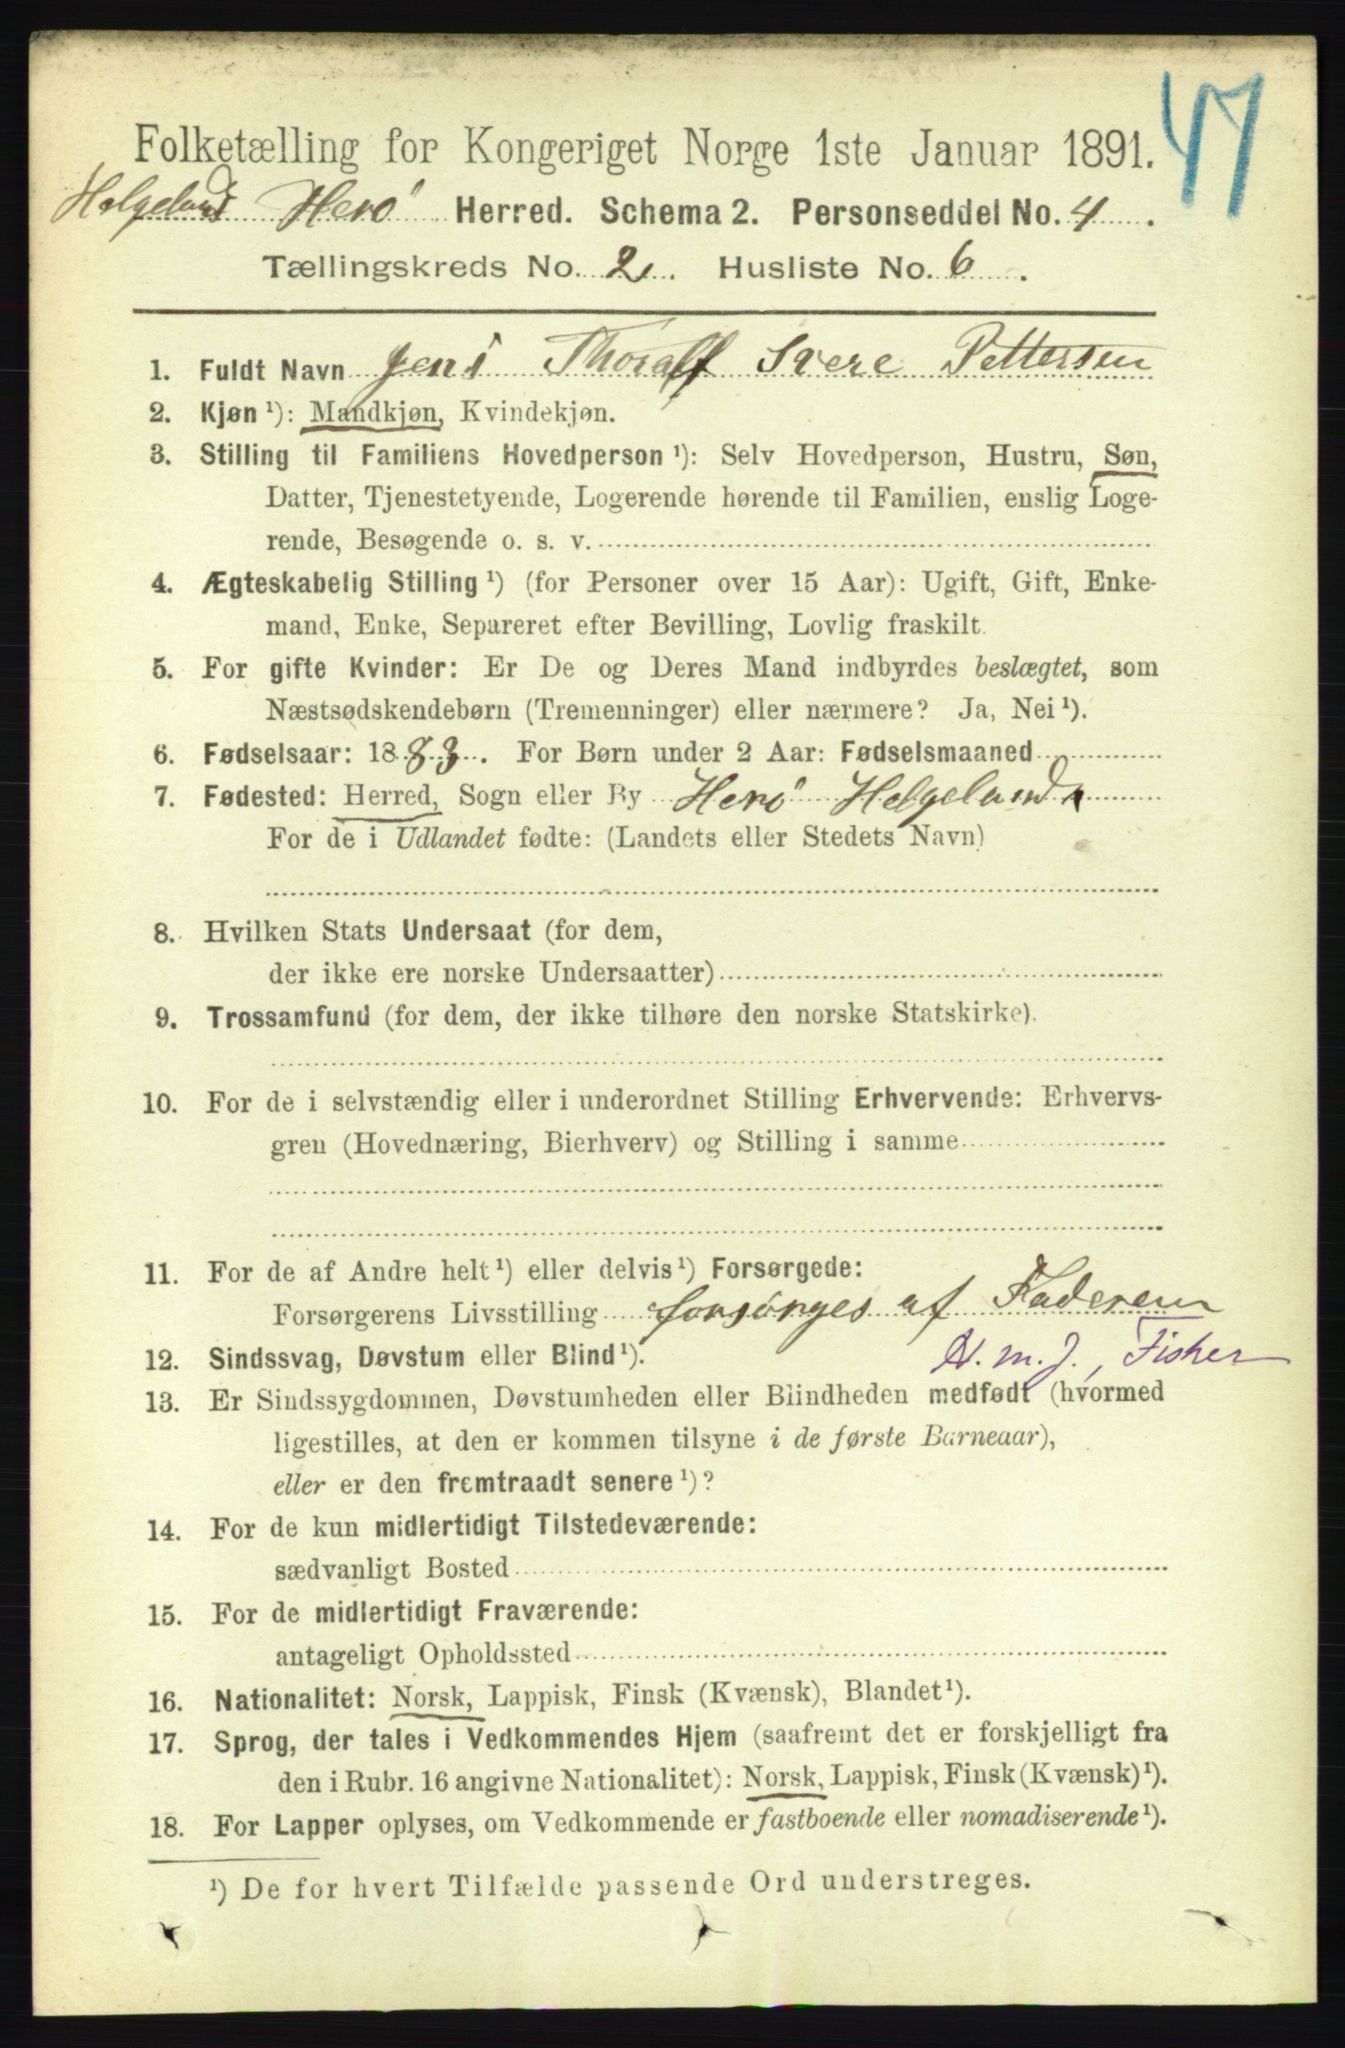 47
Folketælling for Kongeriget Norge 1ste Januar 1891.
Helgeland Herö Herred. Schema 2. Personseddel No. 4.
Tællingskreds No. 2. Husliste No. 6.
1. Fuldt Navn Jens Thoralf Svere Pettersen
2. Kjøn ¹): Mandkjøn, Kvindekjøn.
3. Stilling til Familiens Hovedperson ¹): Selv Hovedperson, Hustru, Søn,
Datter, Tjenestetyende, Logerende hørende til Familien, enslig Loge-
rende, Besøgende o. s. v.
4. Ægteskabelig Stilling ¹) (for Personer over 15 Aar): Ugift, Gift, Enke-
mand, Enke, Separeret efter Bevilling, Lovlig fraskilt.
5. For gifte Kvinder: Er De og Deres Mand indbyrdes beslægtet, som
Næstsødskendebørn (Tremenninger) eller nærmere? Ja, Nei ¹).
6. Fødselsaar: 1883. For Børn under 2 Aar: Fødselsmaaned
7. Fødested: Herred, Sogn eller By Herö Helgeland
For de i Udlandet fødte: (Landets eller Stedets Navn)
8. Hvilken Stats Undersaat (for dem,
der ikke ere norske Undersaatter)
9. Trossamfund (for dem, der ikke tilhøre den norske Statskirke).
10. For de i selvstændig eller i underordnet Stilling Erhvervende: Erhvervs-
gren (Hovednæring, Bierhverv) og Stilling i samme
11. For de af Andre helt ¹) eller delvis ¹) Forsørgede:
Forsørgerens Livsstilling forsörges af Faderen
N. m. J., Fisker
12. Sindssvag, Døvstum eller Blind ¹).
13. Er Sindssygdommen, Døvstumheden eller Blindheden medfødt (hvormed
ligestilles, at den er kommen tilsyne i de første Barneaar),
eller er den fremtraadt senere ¹)?
14. For de kun midlertidigt Tilstedeværende:
sædvanligt Bosted
15. For de midlertidigt Fraværende:
antageligt Opholdssted
16. Nationalitet: Norsk, Lappisk, Finsk (Kvænsk), Blandet ¹).
17. Sprog, der tales i Vedkommendes Hjem (saafremt det er forskjelligt fra
den i Rubr. 16 angivne Nationalitet): Norsk, Lappisk, Finsk (Kvænsk) ¹).
18. For Lapper oplyses, om Vedkommende er fastboende eller nomadiserende ¹).
¹) De for hvert Tilfælde passende Ord understreges.